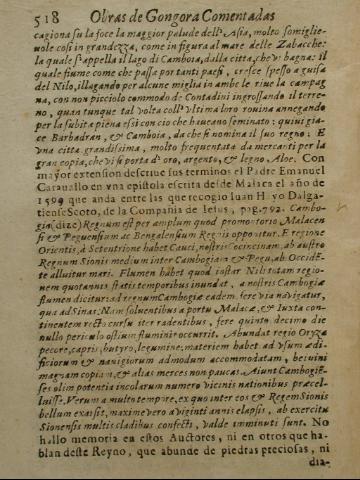 518 Obras de Gongora Comentadas
cagiona su la foce la maggior palude dell' Asia, molto somiglie-
uole cosi in grandezza, come in figura al mare delle Zabacche:
la quale s'appella il lago di Camboia, dalla citta, che vi bagna: il
quale fiume come che passa per tanti paesi, cresce spesso a guisa
del Nilo, illagando per alcune miglia in ambe le riue la campag
na, con non picciolo commodo de Contadini ingrossando il terre-
no, quantunque tal volta coll' ultima loro rouina annegando
per la subita piena essi con cio che haueano seminato: quui gia-
ce Barbadran, & Camboia, da che si nomina il suo regno: E
vna citta grandissima, molto frequentata da mercanti per la
gran copia, che vi si porta d'oro, argento, & legno Aloe. Con
mayor extension descriue sus terminos el Padre Emanuel
Carauallo en vna epistola escrita desde Malaca el año de
1599 que anda entre las que recogio Iuan Hayo Dalga-
tiense Scoto, de la Compañia de Iesus, pag. 792. Cambo-
gia (dize) Regnum est per amplum quod promontorio Malacen
si & Peguensium ac Bengalensum Regnis opponitur. E regione
Orientis, à Sctentrione habet Cauci, nostris Cocincinam: ab austro
Regnum Sionis medium inter Cambogiam & Pegu, ab Occidē-
te alluitur mari. Flumen habet quod instar Nili totam regio-
nem quotannis statis temporibus inundat, a nostris Cambogiæ
flumen dicitur: ad regnum Cambogiæ eadem fere via nauigatur,
qua ad Sinas. Nam soluentibus a portu Malacæ, & Iuxta con-
tinentem recto cursu iter radentibus, fere quinto decimo die
nullo periculo ostium fluminis occurrit. Abundat regio Oryza
pecore, capris, butyro, legumine, materiem habet ad vsum ædi-
ficiorum & nauigiorum admodum accommodatam, benuini
magnam copiam, & alias merces non paucas. Aiunt Cambogiē-
ses olim potentia incolarum numero vicinis nationibus præcel-
luisse. Verum a multo tempore, ex quo inter eos & Regem Sionis
bellum exarsit, maxime vero a viginti annis elapsis, ab exercitu
Sionensis multis cladibus confecti, valde imminuti sunt. No
hallo memoria en estos Auctores, ni en otros que ha-
blan deste Reyno, que abunde de piedras preciosas, ni
dia-